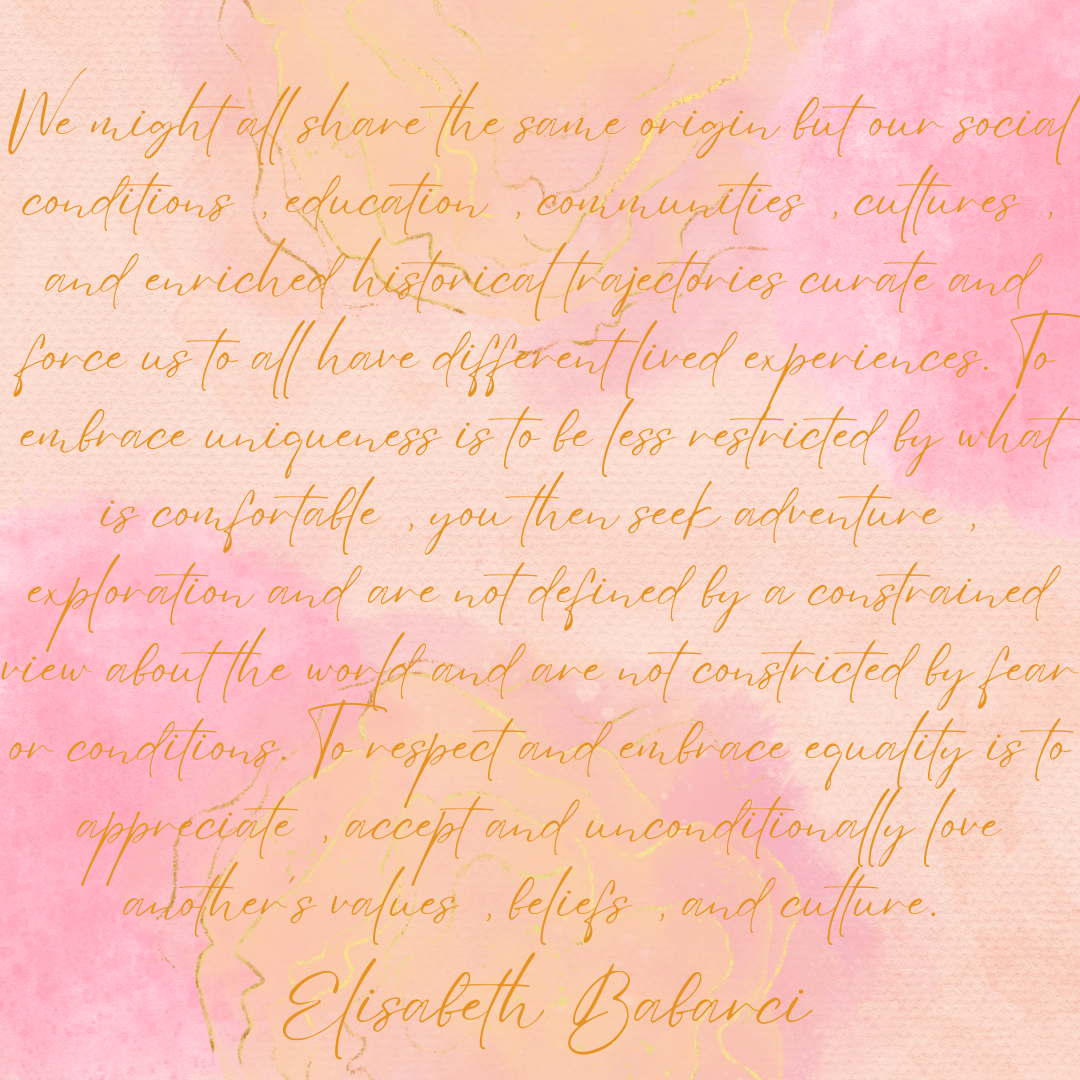 We might all share the same origin but our social
conditions , education , communities , cultures ,
and enriched historical trajectories curate and
force us to all have different lived experiences. To
embrace uniqueness is to be less restricted by what
is comfortable , you then seek adventure ,
exploration and are not defined by a constrained
view about the world and are not constricted by fear
or conditions. To respect and embrace equality is to
appreciate , accept and unconditionally love
another's values , beliefs , and culture.
Elisabeth Babarci